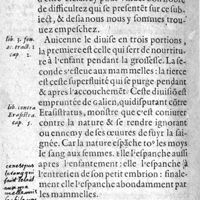 de difficultez qui se presentẽt sur ce sub-
iect, & desanons nous y sommes trouuez
empeschez.
lib. 3. fen.
tract. 1
cap. 2.
Auicenne le diuise en trois portions,
la premiere est celle qui sert de nourritu-
re à l'enfant pendant la grossesse. La se-
conde s'esleue aux mammelles: la tierce
est ceste superfluité qui se purge pendant
& apres l'accouchemẽt. Ceste diuisiõ est
empruntée de Galien, qui disputant cõtre
lib. contra
Erasistra.
cap. 5.
Erasistratus, monstre que c'est coniurer
contre la nature & se rendre ignorant
ou ennemy de ses œuures de fuyr la sai-
gnée. Car la nature n'espãche toꝰ les moys
le sang aux femmes. Elle l'espanche aussi
apres l'enfantement: elle l'espanche à
l'entretien de son petit embrion: finale-
ment elle l'espanche abondamment par
les mammelles.